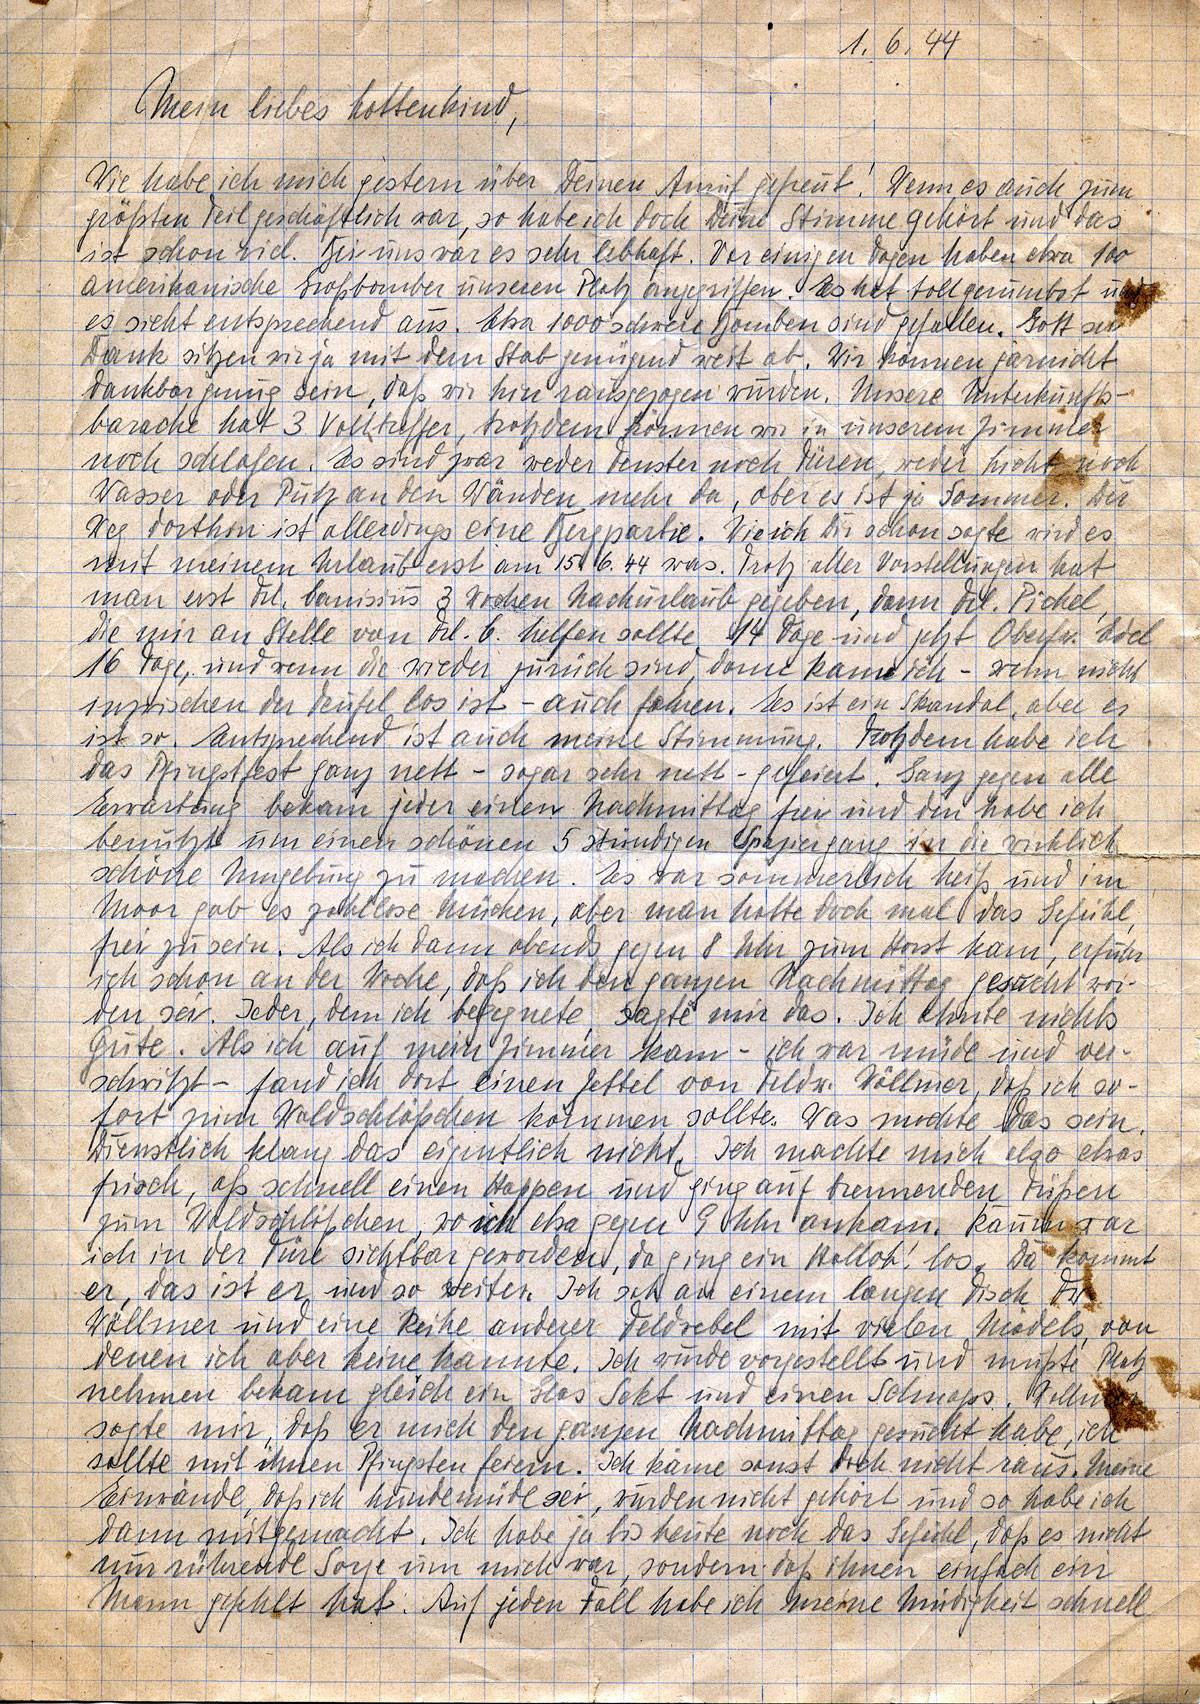 1. 6. 44
Mein liebes Kottenkind,
Wie habe ich mich gestern über Deinen Anruf gefreut! Wenn es auch zum
größten Teil geschäftlich war, so habe ich doch Deine Stimme gehört und das
ist schon viel. Bei uns war es sehr lebhaft. Vor einigen Tagen haben etwa 100
amerikanische Großbomber unseren Platz angegriffen. Es hat toll gerumbst und
es sieht entsprechend aus. Etwa 1000 schwere Bomben sind gefallen. Gott sei
Dank sitzen wir ja mit dem Stab genügend weit ab. Wir können garnicht
dankbar genug sein, daß wir hin rausgezogen wurden. Unsere Unterkunfts-
baracke hat 3 Volltreffer, trotzdem können wir in unserem Zimmer
noch schlafen. Es sind zwar weder Fenster noch Türen, weder Licht noch
Wasser oder Putz an den Wänden mehr da, aber es ist ja Sommer. Der
Weg dorthin ist allerdings eine Bergpartie. Wie ich Dir schon sagte wird es
mit meinem Urlaub erst am 15. 6. 44 was. Trotz aller Vorstellungen hat
man erst Frl. Canisius 3 Wochen Nachurlaub gegeben, dann Frl. Pichel,
die mir an Stelle von Frl. C. helfen sollte 14 Tage und jetzt Oberfw. Edel
16 Tage, und wenn die wieder zurück sind, dann kann ich - wenn nicht
inzwischen der Teufel los ist - auch fahren. Es ist ein Skandal, aber es
ist so. Entsprechend ist auch meine Stimmung. Trotzdem habe ich
das Pfingstfest ganz nett - sogar sehr nett - gefeiert. Ganz gegen alle
Erwartung bekam jeder einen Nachmittag frei und den habe ich
benutzt um einen schönen 5 stündigen Spaziergang in die wirklich
schöne Umgebung zu machen. Es war sommerlich heiß und im
Moor gab es zahllose Mücken, aber man hatte doch mal das Gefühl,
frei zu sein. Als ich dann abends gegen 8 Uhr zum Horst kam, erfuhr
ich schon an der Wache, daß ich den ganzen Nachmittag gesucht wor-
den sei. Jeder, dem ich begegnete, sagte mir das. Ich ahnte nichts
Gutes. Als ich auf mein Zimmer kam - ich war müde und ver-
schwitzt - fand ich dort einen Zettel von Feldw. Völlmer, daß ich so-
fort zum Waldschlößchen kommen sollte. Was mochte das sein.
Dienstlich klang das eigentlich nicht. Ich machte mich also etwas
frisch, aß schnell einen Happen und ging auf brennenden Füßen
zum Waldschlößchen, wo ich etwa gegen 9 Uhr ankam. Kaum war
ich in der Türe sichtbar geworden, da ging ein Halloh! los. Da kommt
er, das ist er und so weiter. Ich sah an einem langen Tisch Fw.
Völlmer und eine Reihe anderer Feldwebel mit vielen Mädels, von
denen ich aber keine kannte. Ich wurde vorgestellt und mußte Platz
nehmen bekam gleich ein Glas Sekt und einen Schnaps. Völlmer
sagte mir, daß er mich den ganzen Nachmittag gesucht habe, ich
sollte mit ihnen Pfingsten feiern. Ich käme sonst doch nicht raus. Meine
Einwände, daß ich hundemüde sei, wurden nicht gehört und so habe ich
dann mitgemacht. Ich habe ja bis heute noch das Gefühl, daß es nicht
nur rührende Sorge um mich war, sondern daß ihnen einfach ein
Mann gefehlt hat. Auf jeden Fall habe ich meine Müdigkeit schnell